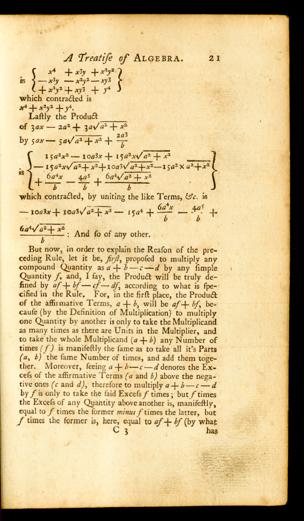 A Treatise of ALGEBRA. 21
x⁴ + x³y + x²y²
is { — x³y — x²y² — xy³ }
+ x²y² + xy³ + y⁴
which contracted is
x⁴ + x²y² + y⁴.
Lastly the Product
of 3ax — 2a² + 3a√a² + x²
by 5ax — 5a√a² + x² + 2a³/b
15a²x² — 10a3x + 15a²x√a² + x²
— 15a²x√a²+x²+10a3√a²+x²—15a²× a²+x²
is { + 6a⁴x/b — 4a⁵/b + 6a⁴√a² + x²/b }
which contracted, by uniting the like Terms, &c. is
— 10a3x + 10a3√a² + x² — 15a⁴ + 6a⁴x/b — 4a⁵/b +
6a⁴√a² + x²/b : And so of any other.
But now, in order to explain the Reason of the pre-
ceding Rule, let it be, first, proposed to multiply any
compound Quantity as a + b — c — d by any simple
Quantity f, and, I say, the Product will be truly de-
fined by af + bf — cf — df, according to what is spe-
cified in the Rule. For, in the first place, the Product
of the affirmative Terms, a + b, will be af + bf, be-
cause (by the Definition of Multiplication) to multiply
one Quantity by another is only to take the Multiplicand
as many times as there are Units in the Multiplier, and
to take the whole Multiplicand (a + b) any Number of
times (f) is manifestly the same as to take all it's Parts
(a, b) the same Number of times, and add them toge-
ther. Moreover, seeing a + b — c — d denotes the Ex-
cess of the affirmative Terms (a and b) above the nega-
tive ones (c and d), therefore to multiply a + b — c — d
by f is only to take the said Excess f times; but f times
the Excess of any Quantity above another is, manifestly,
equal to f times the former minus f times the latter, but
f times the former is, here, equal to af + bf (by what
C 3 has